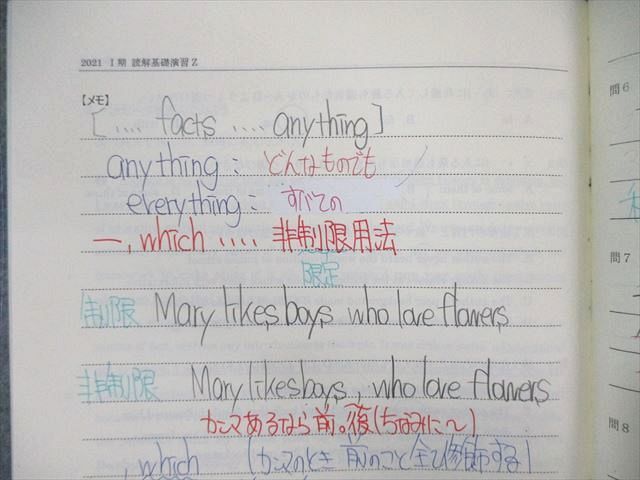 2021 Ⅰ期 読解基礎演習Z
【メモ】
[ .... facts .... anything ]
anything : どんなものでも
everything : すべての
—, which .... 非制限用法
限定
制限 Mary likes boys who love flowers
非制限 Mary likes boys , who love flowers
カンマあるなら前。後(ちなみに〜)
, which (カンマのとき 前のこと全て修飾する)
問6
問7
問8